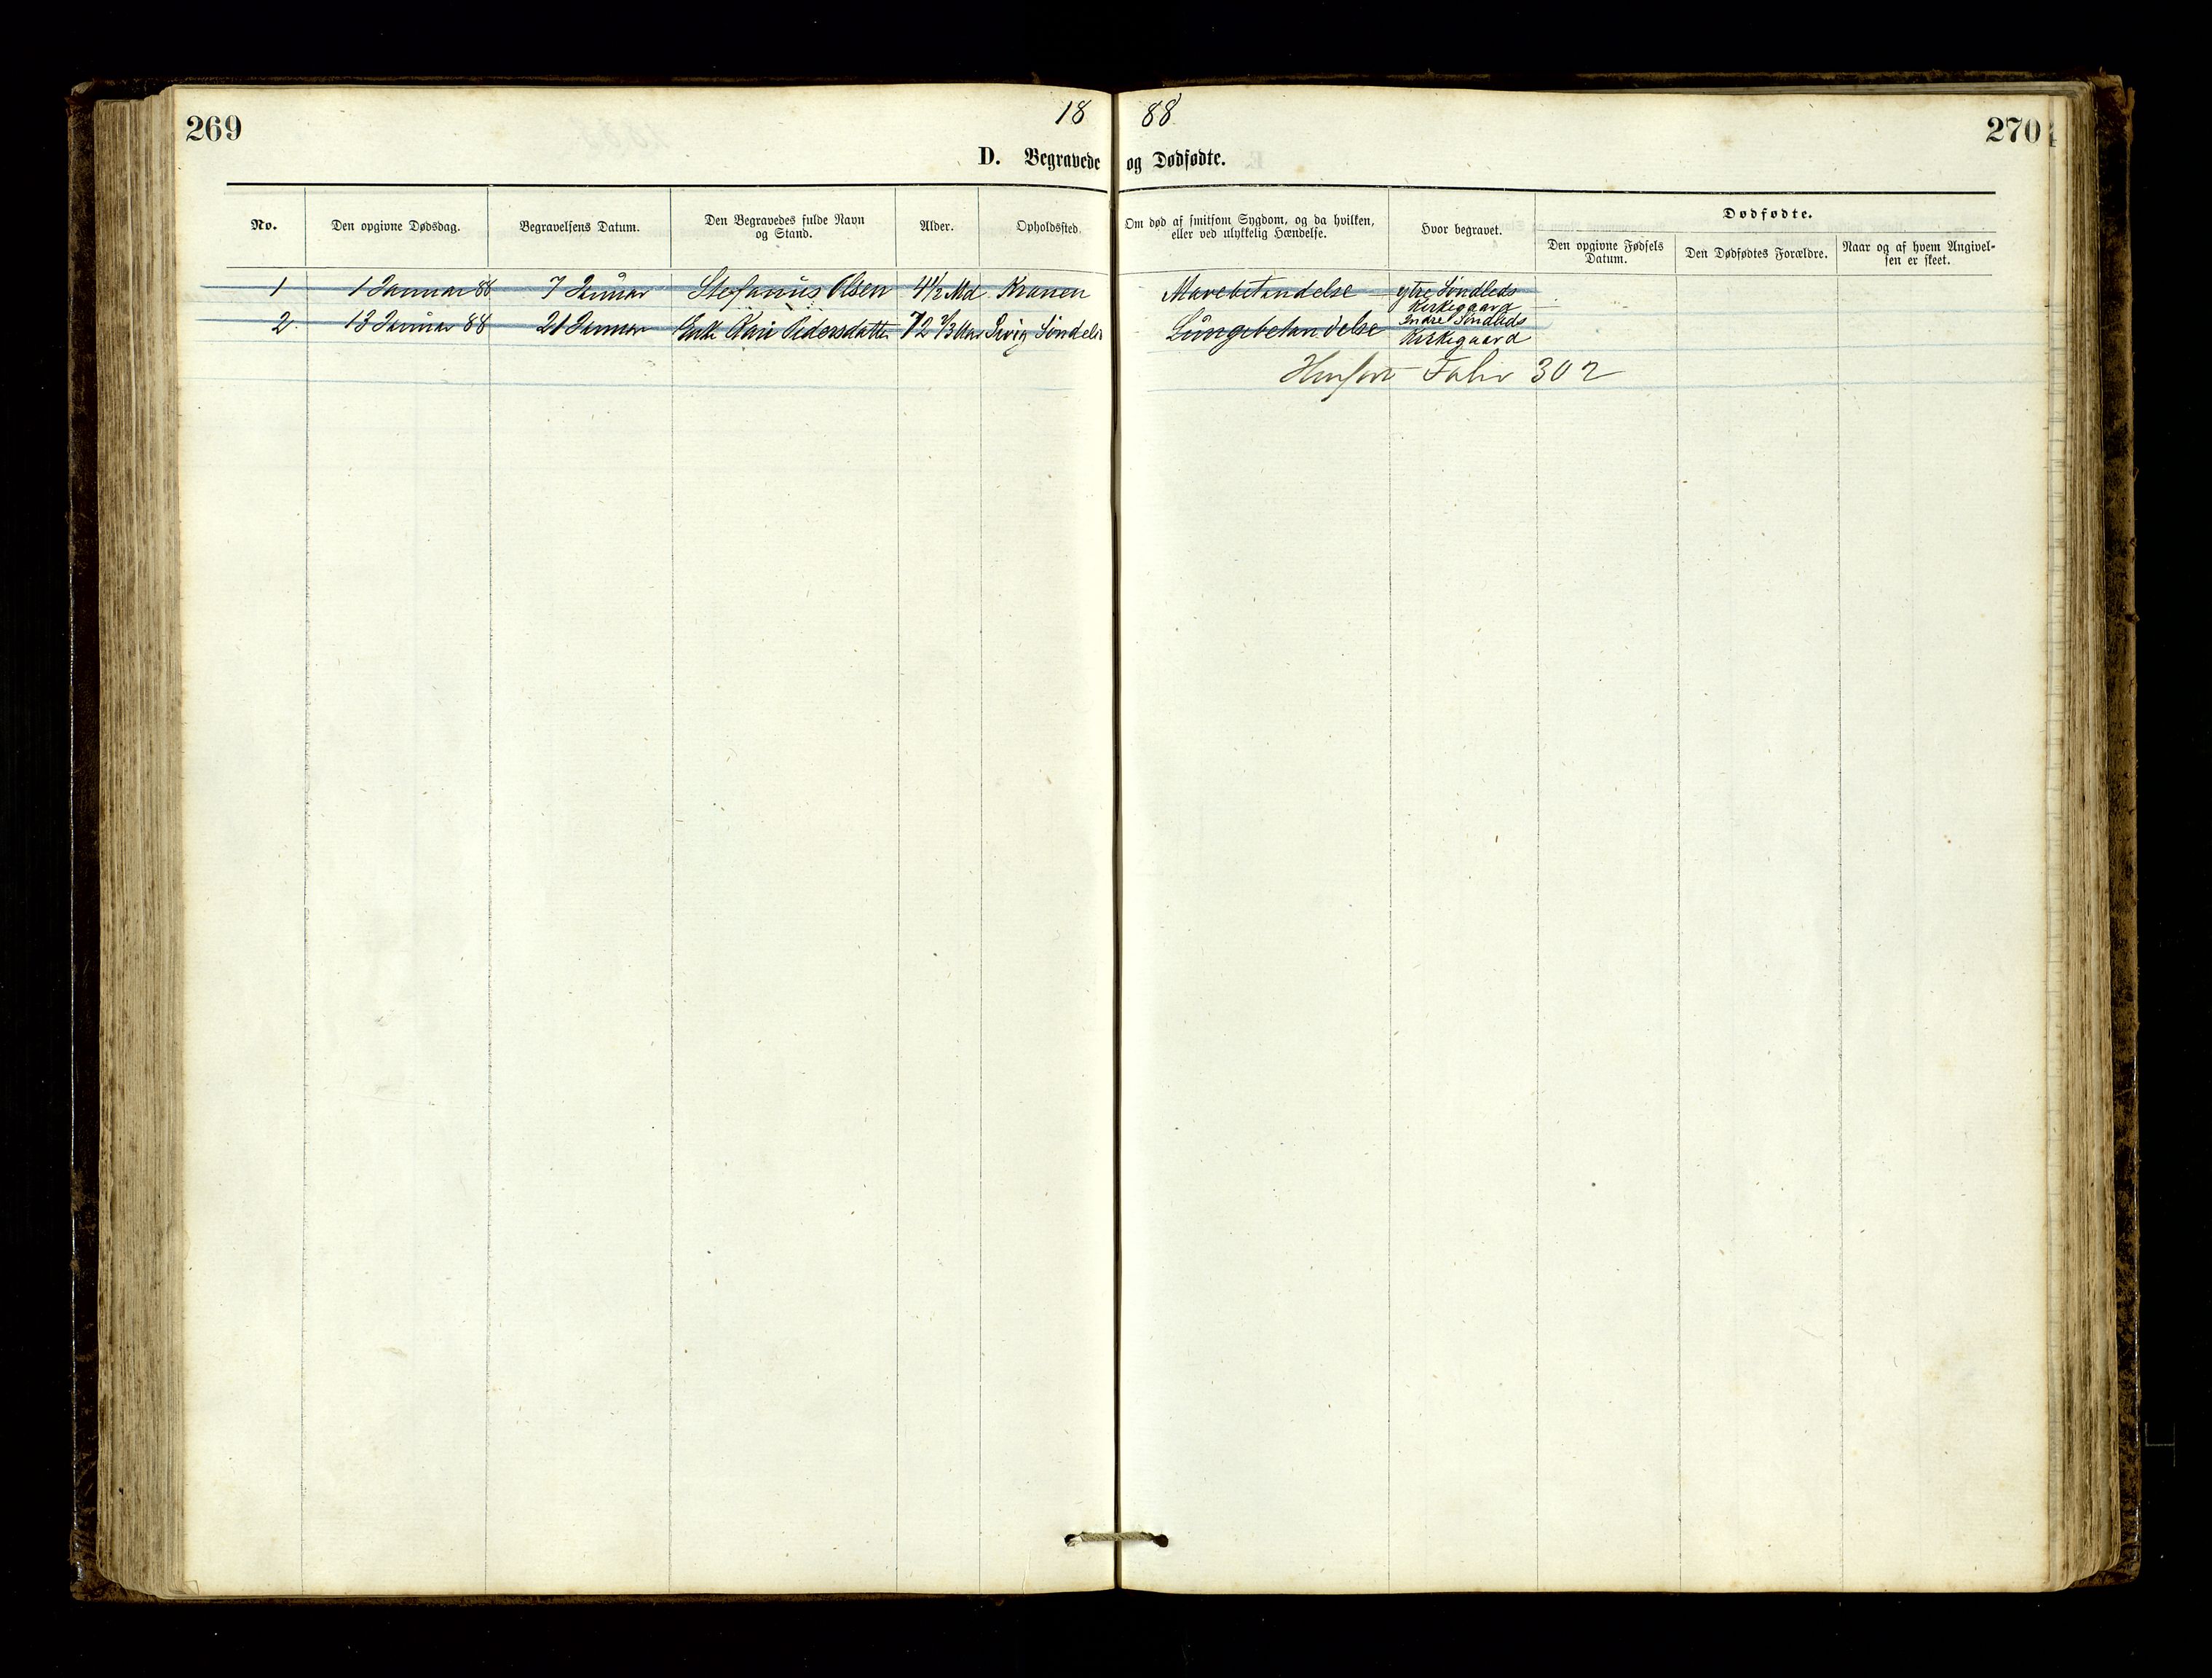 269
18 88
270
D. Begravede og Dødfødte.
No.
Den opgivne Dødsdag.
Begravelsens Datum.
Den Begravedes fulde Navn
og Stand.
Alder.
Opholdssted.
Om død af smitsom Sygdom, og da hvilken,
eller ved ulykkelig Hændelse.
Hvor begravet.
Dødfødte.
Den opgivne Fødsels
Datum.
Den Dødfødtes Forældre.
Naar og af hvem Angivel-
sen er skeet.
1 1 Januar 88 7 Januar Stefanus Olsen 4 1/2 Md. Kranen Mavebetændelse ytre Søndleds
Kirkegaard
2. 13 Januar 88 21 Januar Enke Kari Pedersdatter 72 2/3 Aar Sivig Søndeled Lungebetændelse Indre Søndleds
Kirkegaard
Henført Folio 302